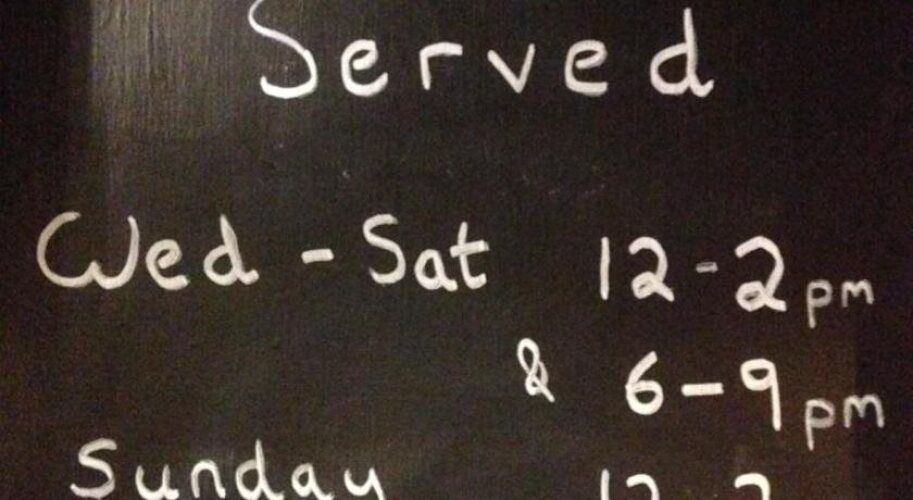 Served
Wed - Sat 12-2pm
& 6-9pm
Sunday 12-